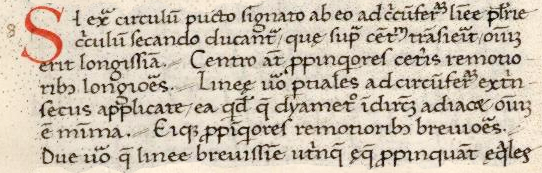 8 Si exᵃ circulū pūcto signato ab eo ad c̄cūferᵃ̄ līee pl̄rīe
c̄culū secando ducant᷑, que supᵃ cētᵐ̄ trāsieūt, oīuȝ
erit longissīa. Centro at̄ ꝓpinqores ceterꝭ remotio
ribꝫ longioēs. Linee ūo ꝑtiales ad circūferᵃ̄ extᵃ̄n
secus applicate, ea qd̄ q̄ dyametº īdirecꝫ adiacꝫ oīuȝ
ē mīma. Eiqꝫ ꝓpīqores remotioribꝫ breuioēs.
Due ūo q̄ linee breuissīe utīnqꝫ eq̄ ꝓpinquāt eqͥles